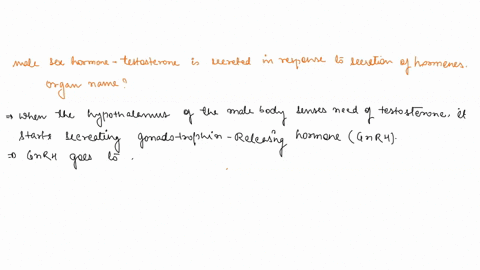 male sex hormone - testosterone is secreted in response to secretion of hormones.
organ name?
⇒ when the hypothalamus of the male body senses need of testosterone, it
starts secreating gonado trophin - Releasing hormone (GnRH).
⇒ GnRH goes to .